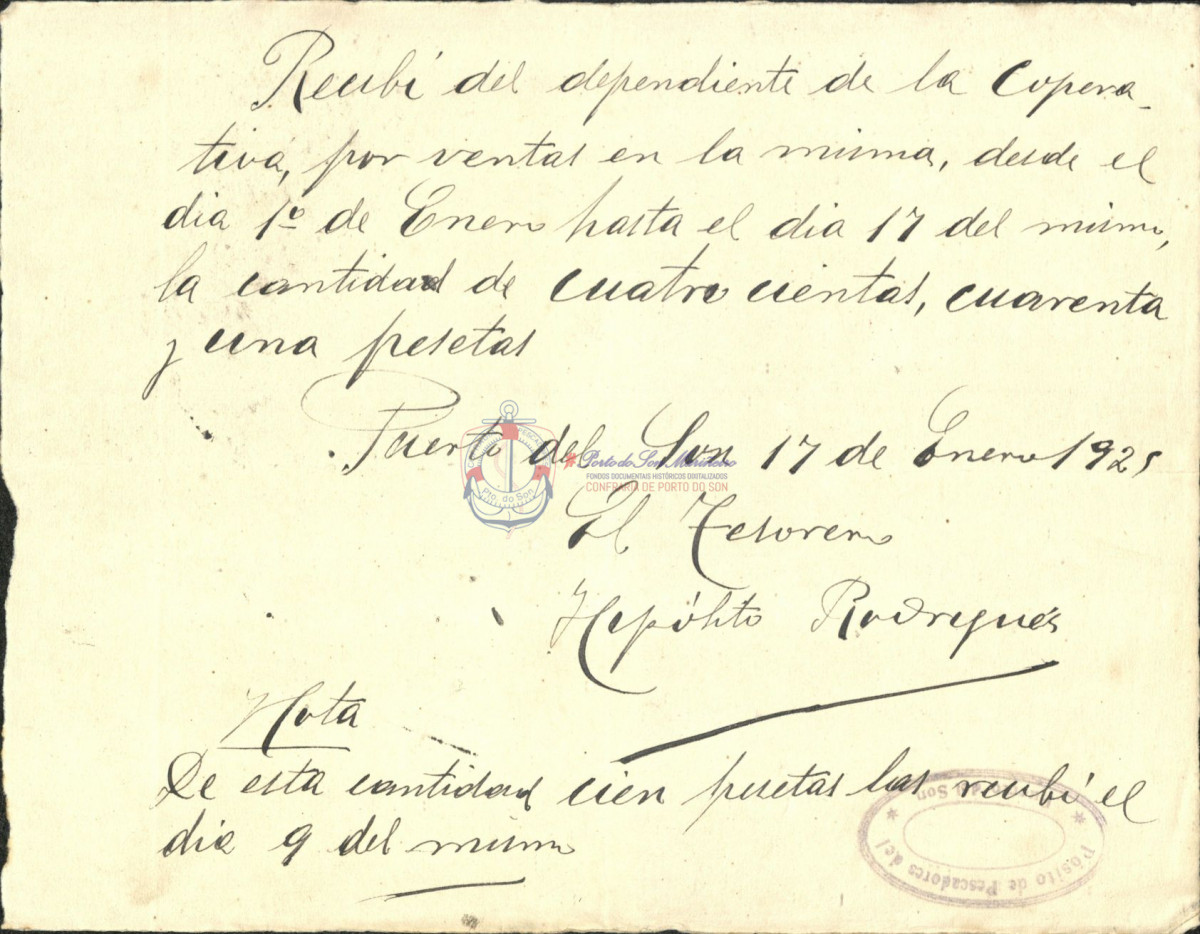 Recibí del dependiente de la Copera-
tiva, por ventas en la misma, desde el
dia 1º de Enero hasta el dia 17 del mismo,
la cantidad de cuatro cientas, cuarenta
y una pesetas
Puerto del Son 17 de Enero 1925
Pto. do Son
Porto do Son Mariñeiro
FONDOS DOCUMENTAIS HISTÓRICOS DIXITALIZADOS
CONFRARÍA DE PORTO DO SON
El Tesorero
Hipólito Rodrigués
Nota
De esta cantidad cien pesetas las recibí el
dia 9 del mismo
Pósito de Pescadores del
Son